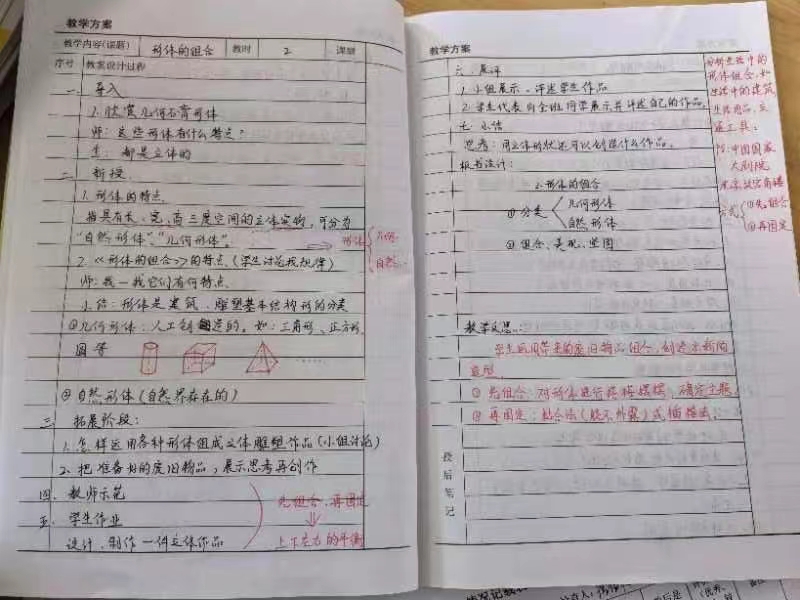 教学方案
教学内容(课题) 形体的组合 教时 2 课型
序号 教案设计过程
一. 导入
1. 欣赏几何石膏形体
师: 这些形体有什么特点?
生: 都是立体的
二. 新授.
1. 形体的特点.
指具有长、宽、高三度空间的立体实物, 可分为
"自然形体"、"几何形体".
形体 { 几何 自然
2.《形体的组合》的特点.(学生讨论找规律)
师: 找一找它们有何特点.
小结: 形体是建筑、雕塑基本结构形的分类
①几何形体: 人工创造的. 如: 三角形、正方形、
圆等 ……
②自然形体(自然界存在的)
三. 拓展阶段:
1. 怎样运用各种形体组成立体雕塑作品(小组讨论)
2. 把准备好的废旧物品, 展示思考再创作
四. 教师示范
五. 学生作业
设计、制作一件立体作品
先组合, 再固定
⇓
上下左右的平衡
教学方案
六. 展评
1. 小组展示、评述学生作品
2. 学生代表向全班同学展示并评述自己的作品.
七. 小结
思考: 用立体形状还可以创造什么作品.
板书设计:
形体的组合
① 分类 < 几何形体 自然形体
② 组合、美观、坚固
生活中的
形体组合, 如
生活中的建筑
生活用品, 交
通工具:
中国国家
大剧院
北京故宫角楼
方式 { ①先组合 ②再固定
教学反思:
学生运用带来的废旧物品组合, 创造出新的
造型
① 先组合: 对形体进行摆摆, 确定主题.
② 再固定: 粘合法(胶不外露)或插接法.
授后笔记